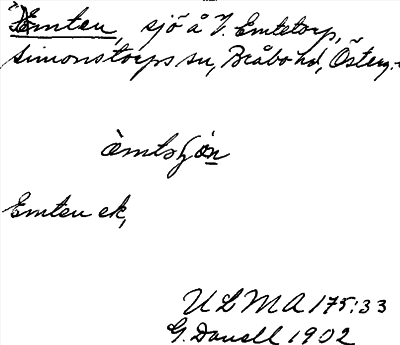 Emten, sjö å V. Emtetorp,
Simonstorps sn, Bråbo hd, Österg.
ämtsjön
Emten ek,
ULMA 175:33
G. Danell 1902